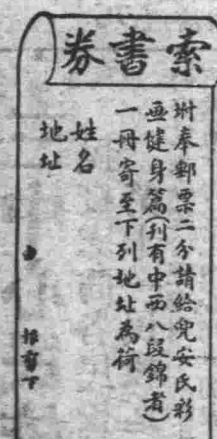 索書券
坿奉郵票二分請給兜安氏彩
畫健身篇(刊有中西八段錦者)
一冊寄至下列地址為荷
姓名
地址
由 報剪下